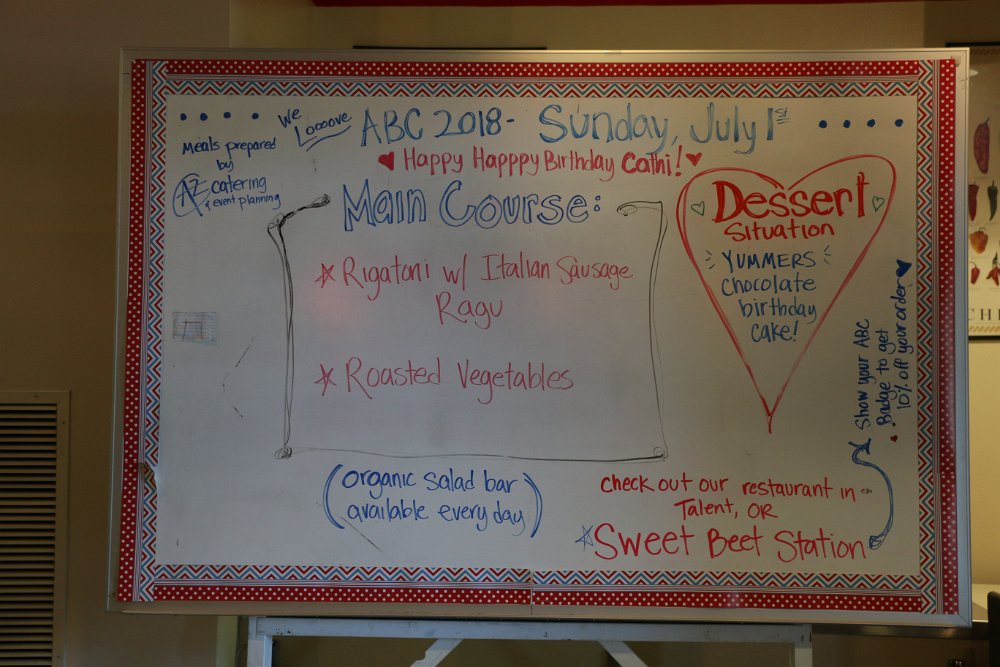 We
Looove
ABC 2018- Sunday, July 1st
Happy Happpy Birthday Cathi!
Meals prepared
by
AZ catering
& event planning
Main Course:
Rigatoni w/ Italian Sausage
Ragu
Roasted Vegetables
Dessert
Situation
YUMMERS
Chocolate
birthday
cake!
Show your ABC
Badge to get
10% off your order
(organic salad bar
available every day)
check out our restaurant in
Talent, OR
Sweet Beet Station